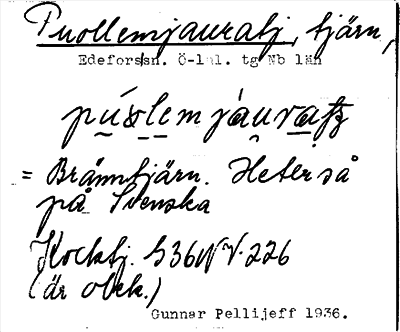 Puollemjauratj, tjärn,
Edeforssn. Ö-lul. tg Nb län
= Bränntjärn. Heter så
på Svenska
Kocktj. S36NV.226
(är obek.)
Gunnar Pellijeff 1936.